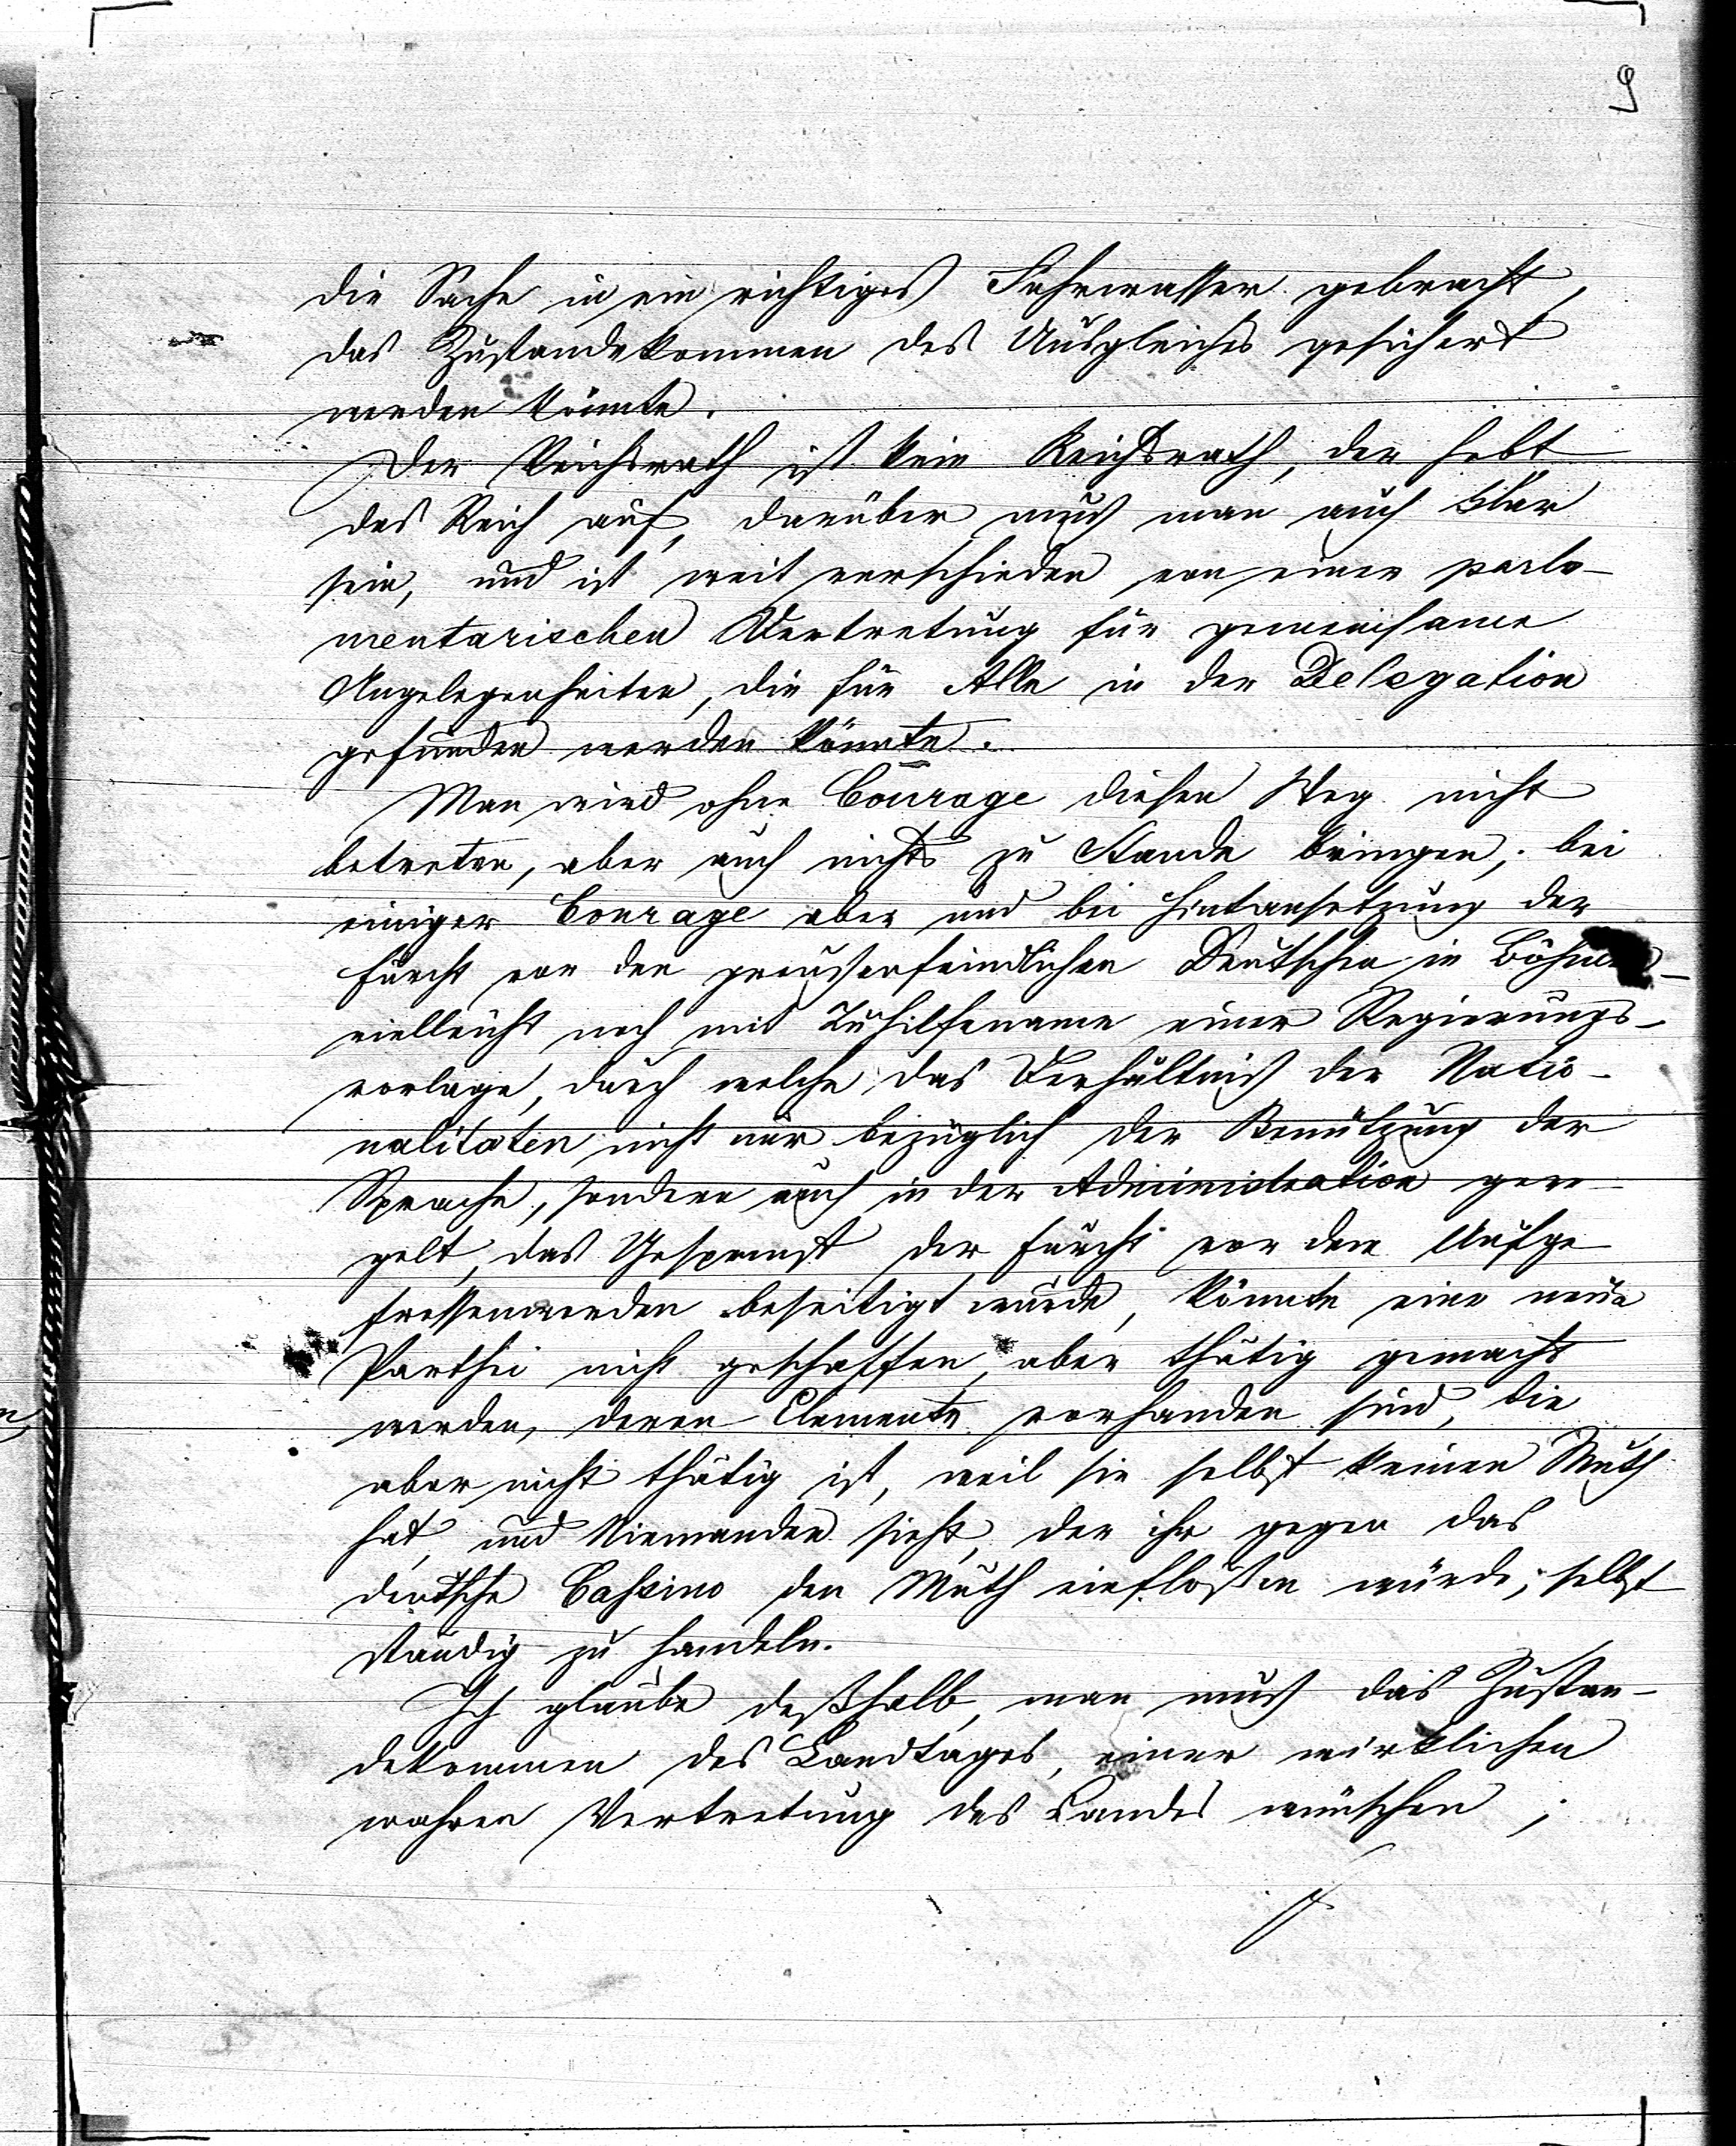 9
die Sache in ein richtiges Fahrwasser gebracht,
das Zustandekommen des Ausgleiches gesichert
werden könnte.
Der Reichsrath ist kein Reichsrath, der hebt
das Reich auf, darüber muß man auch klar
sein, und ist weit verschieden von einer parla-
mentarischen Vertretung für gemeinsame
Angelegenheiten, die für Alle in der Delegation
gefunden werden könnte.
Man wird ohne Courage diesen Weg nicht
betreten, aber auch nichts zu Stande bringen; bei
einiger Courage aber und bei Hintansetzung der
Furcht vor den preußenfeindlichen Deutschen in Böhmen-
vielleicht noch mit Zuhilfename einer Regierungs-
vorlage, durch welche das Verhältniß der Natio-
nalitäten nicht nur bezüglich der Benützung der
Sprache, sondern auch in der Administration gere-
gelt, das Gespenst der Furcht vor dem Aufge-
fressenwerden beseitigt würde, könnte eine neue
Parthei nicht geschaffen, aber thätig gemacht
werden, deren Elemente vorhanden sind, die
aber nicht thätig ist, weil sie selbst keinen Muth
hat, und Niemanden sieht, der ihr gegen das
deutsche Cassino den Muth einflößen würde, selbst
ständig zu handeln.
Ich glaube deßhalb, man muß das Zustan-
dekommen des Landtages, einer wirklichen
wahren Vertretung des Landes wünschen;